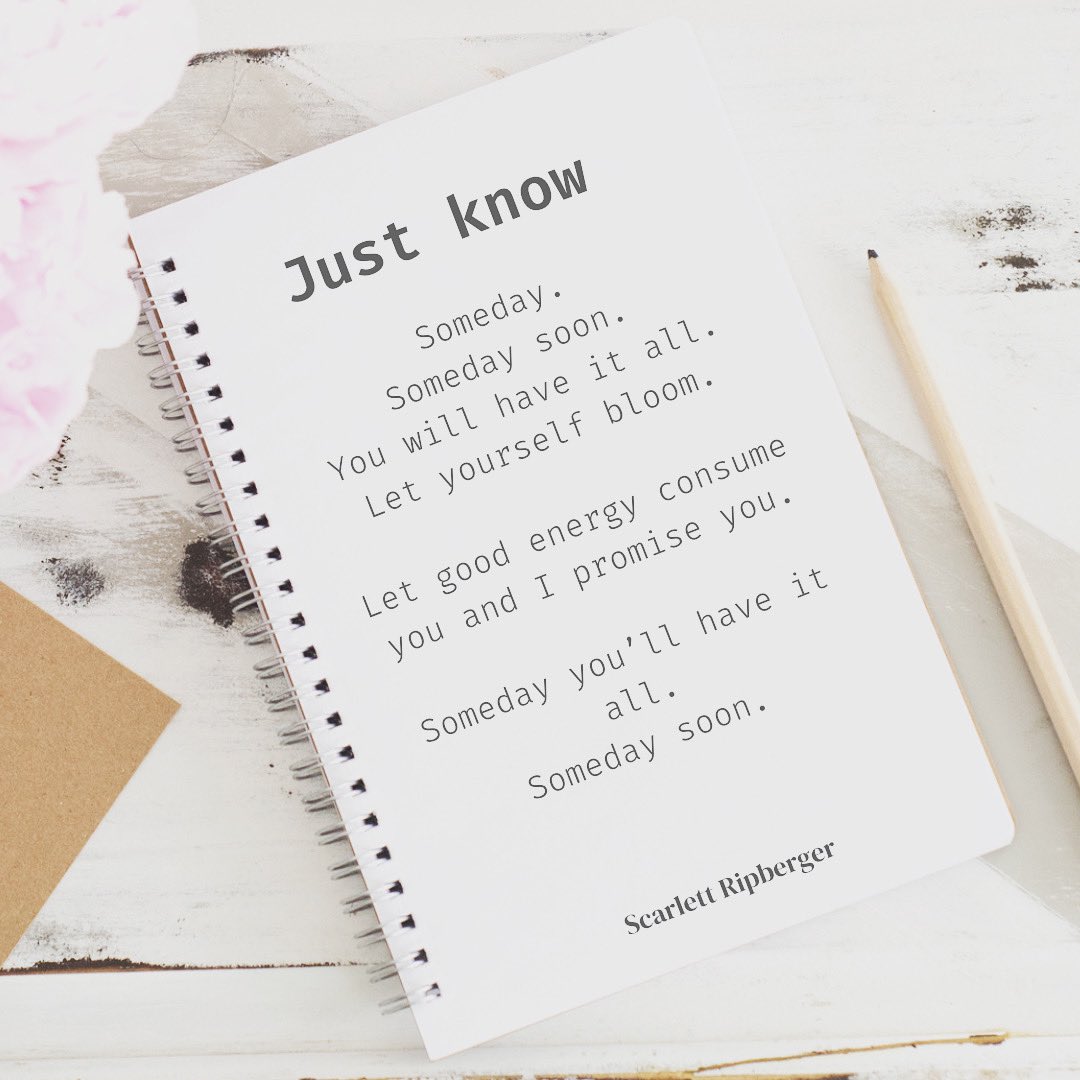 Just know
Someday.
Someday soon.
You will have it all.
Let yourself bloom.
Let good energy consume
you and I promise you.
Someday you’ll have it
all.
Someday soon.
Scarlett Ripberger